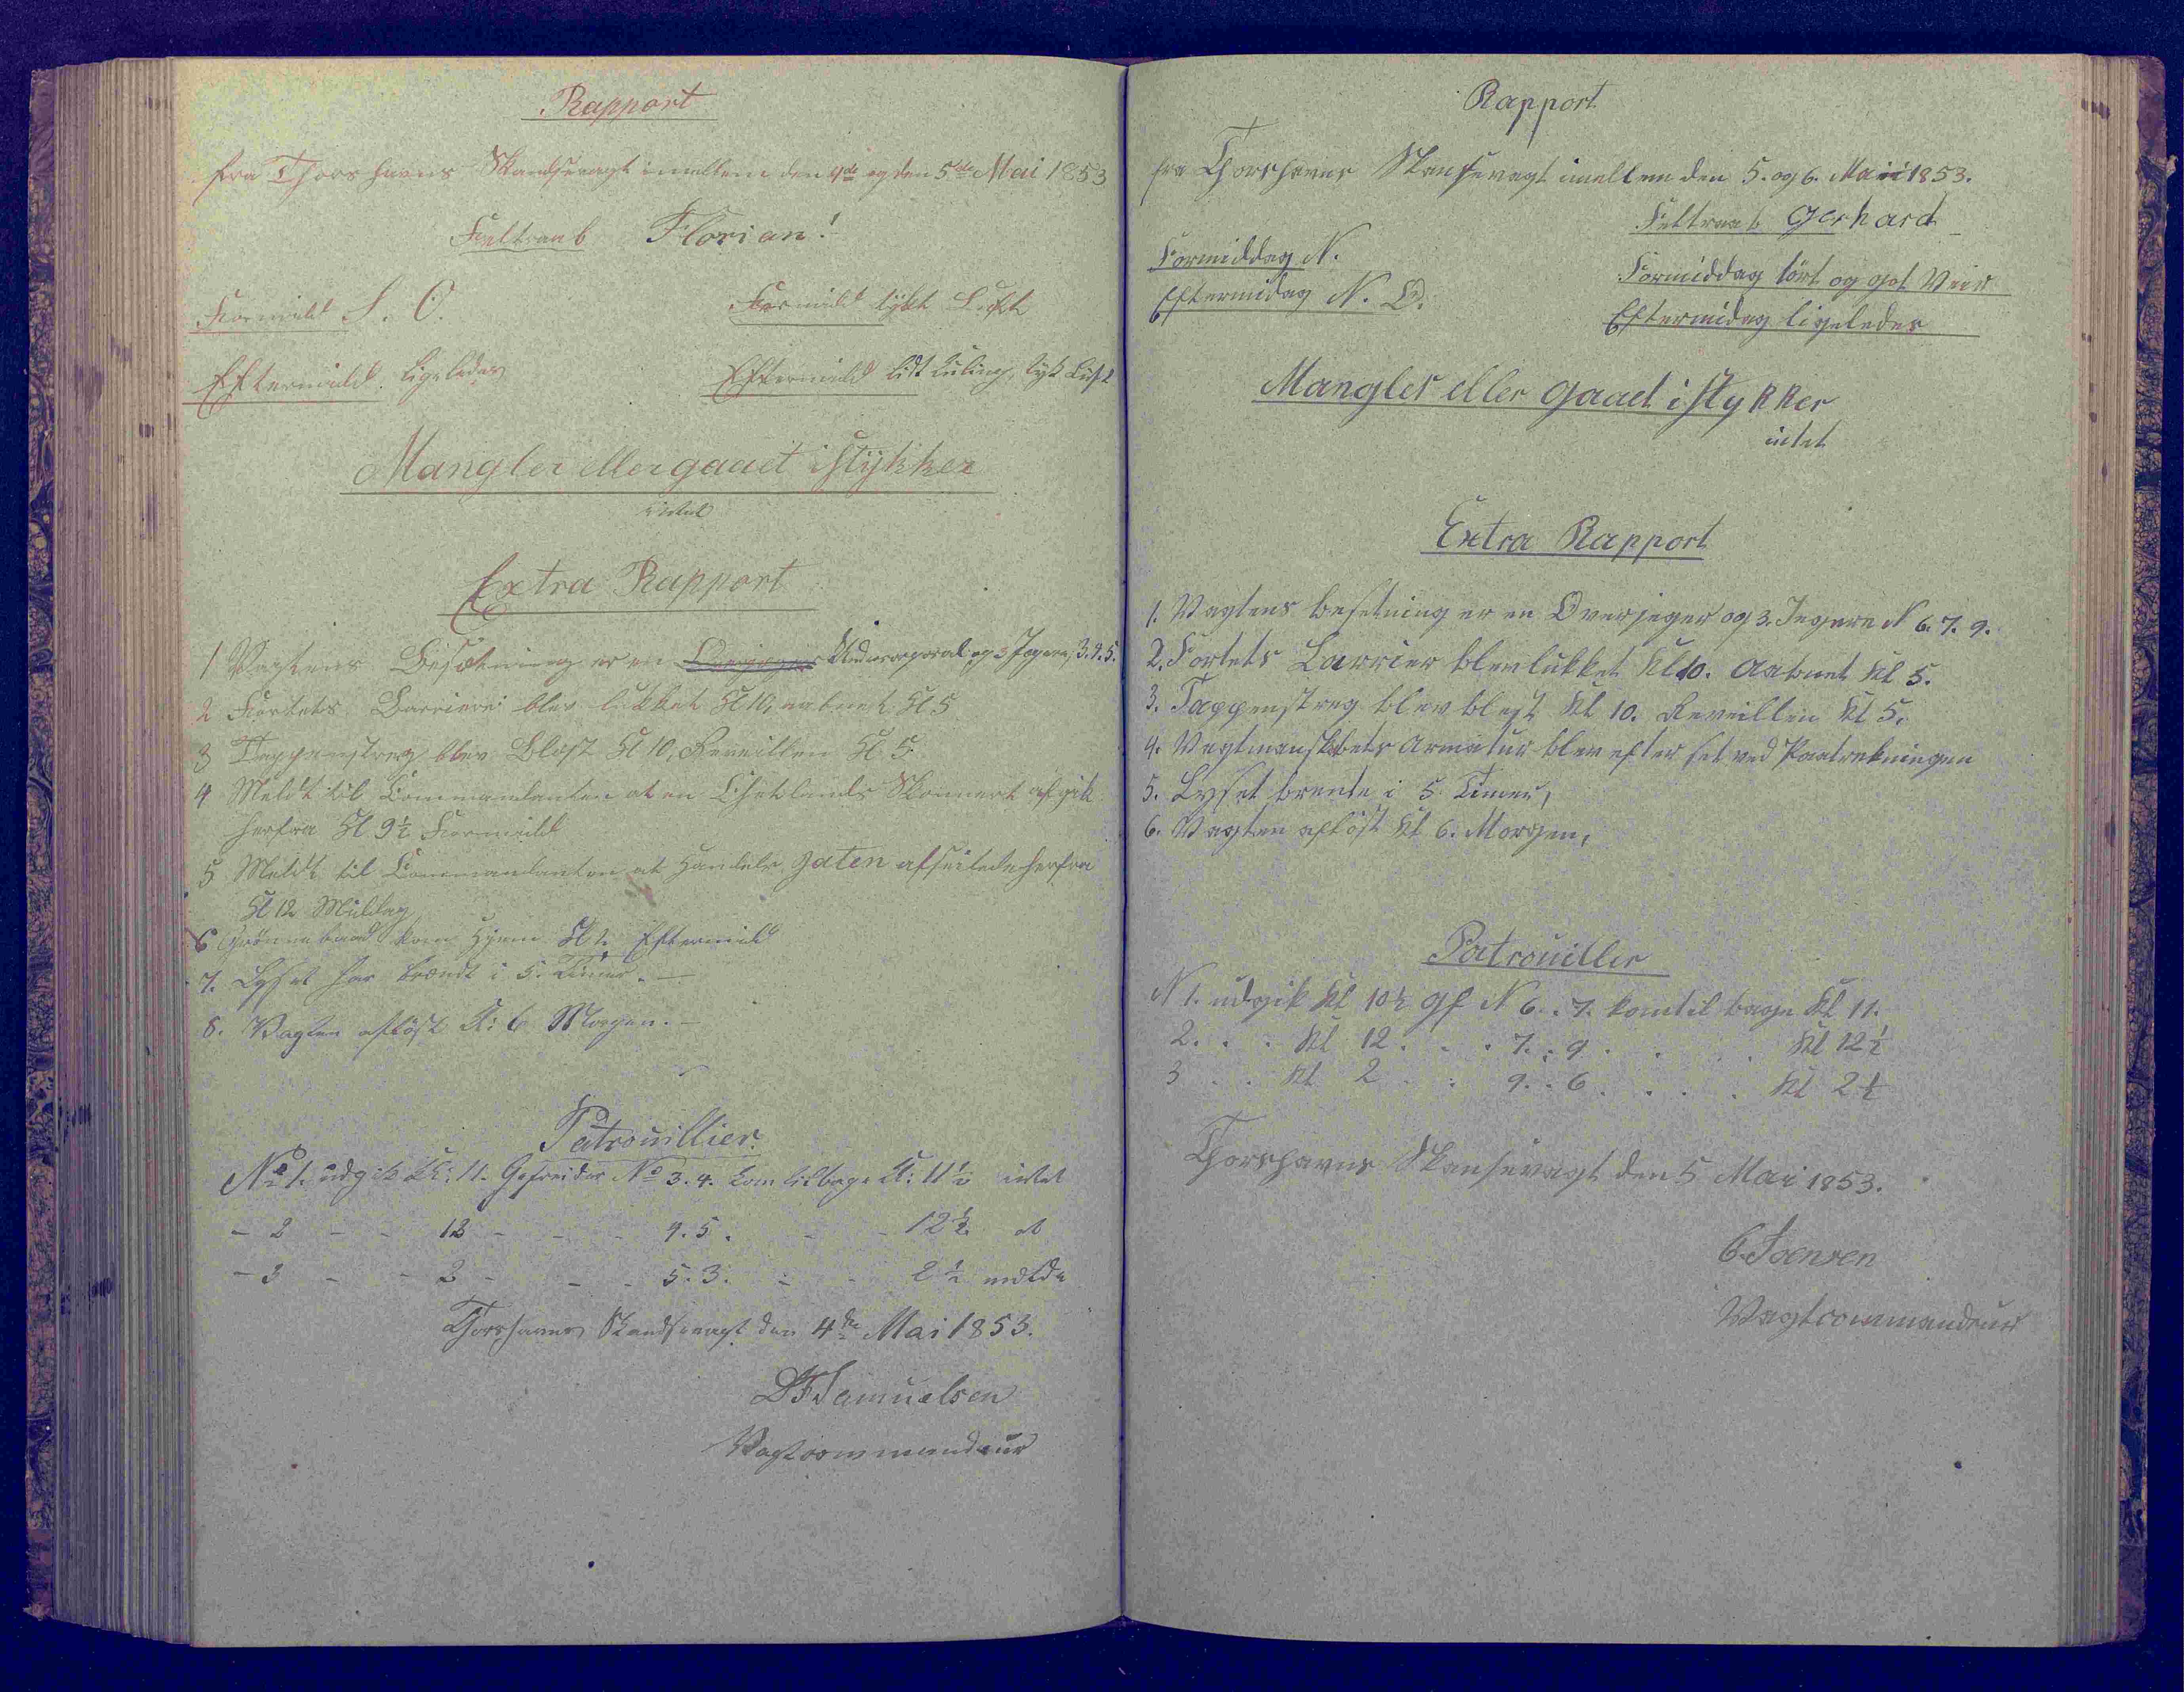 Rapport
fra Thorshavns Skandsevagt imellem den 4de og den 5te Mai 1853
Feltraab Florian!
Formidd S. O.
Formidd tykt Luft
Eftermidd. ligeledes
Eftermidd lidt Kuling, tyk Luft
Mangler eller gaaet i stykker
intet
Extra Rapport
1 Vagtens Besætning er en Overjæger Undercorporal og 3 Jægere, 3.4.5.
2 Fortets Barriere blev lukket Kl 10, aabnet Kl 5
3 Tappenstreg blev Blæst Kl 10, Reveillen Kl 5
4 Meldt til Commandanten at en Chetlands Skonnert afgik
herfra Kl 9½ Formidd
5 Meldt til Commandanten at Handels Jaten afseilede herfra
Kl 12 Middag
6 Grönnebaad kom Hjem Kl Eftermidd
7. Lyset har brændt i 5. Timer. —
8. Vagten aflöst Kl: 6 Morgen. —
Patrouillier.
No 1. udgik Kl: 11. Gefreider No 3.4. kom tilbage Kl: 11½ intet
- 2 - - 12 - - - 4.5. - - 12½ at
- 3 - - 2 - - - 5.3. - - 2½ melde
Thorshavns Skandsevagt den 4de Mai 1853.
Samuelsen
Vagtcommandeur
Rapport
fra Thorshavns Skansevagt imellem den 5. og 6. Maii 1853.
Feltraab Gerhard
Formiddag N.
Formiddag tört og got Veir
Eftermidag N. O.
Eftermidag ligeledes
Mangler eller gaaet i stykker
intet
Extra Rapport
1. Vagtens besetning er en Overjeger og 3. Jegere N 6. 7. 9.
2. Fortets Barrier blev lukket Kl 10. Aabnet Kl 5.
3. Tappenstreg blev blest Kl 10. Reveillen Kl 5.
4. Vagtmanskabets Armatur blev efter set ved Paatrekningen
5. Lyset brente i 5 Timer,
6. Vagten aflöst Kl 6. Morgen,
Patrouiller
N 1. udgik Kl 10½ gf N 6. . 7. kom til bage Kl 11.
2. . . Kl 12 . . . 7. . 9 . . . Kl 12½
3 . . Kl 2 . . 9. . 6 . . . . Kl 2½
Thorshavns Skansevagt den 5 Mai 1853.
Joensen
Vagtcommandeur